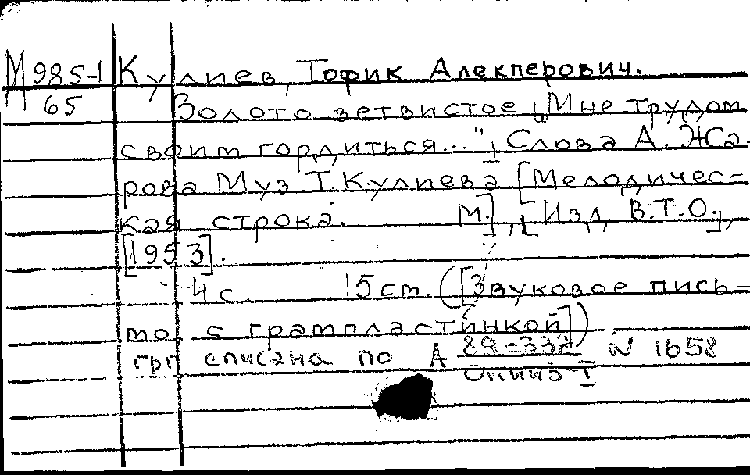 М 985-1 Кулиев, Тофик Алекперович.
65 Золото ветвистое „Мне трудом
своим гордиться...", Слова А. Жа-
рова Муз Т. Кулиева [Мелодичес-
кая строка. М.], [Изд. В.Т.О.],
[1953].
4 с. 15 cm. ([Звуковое пись-
мо с грампластинкой])
грп списана по А 89-338 N 1658